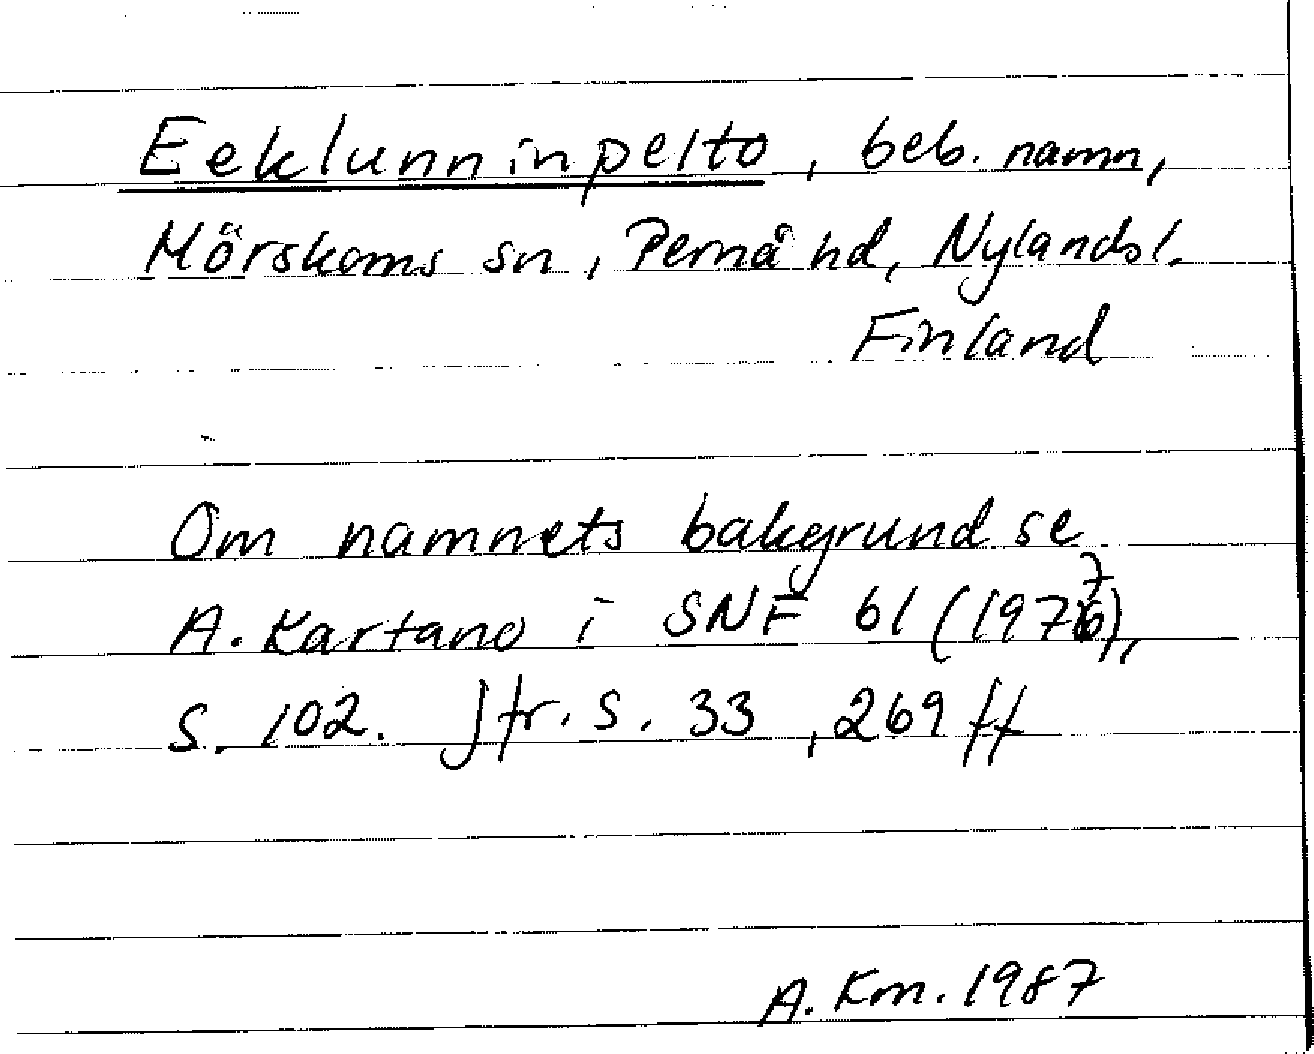 Eeklunninpelto, beb. namn,
Mörskoms sn, Pernå hd, Nylands l.
Finland
Om namnets bakgrund se
A. Kartano i SNF 61 (1977),
s. 102. Jfr. s. 33, 269 ff
A. Km. 1987